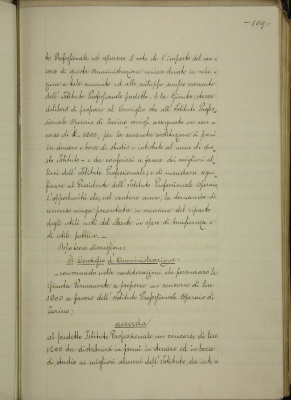 - 109 -
to Professionale ed espresse il voto che l'importo del con-
corso di questa Amministrazione venisse elevato in rela-
zione
dell'Istituto Professionale predetto. E la Giunta
deliberò di proporre al Consiglio che all'Istituto Profes-
sionale Operaio di Torino venisse assegnato un con-
corso di £. 1200, per la consueta costituzione di premi
in denaro e borse di studio - intestate al nome di que-
sto Istituto - e da conferirsi a favore dei migliori al-
lievi dell'Istituto Professionale; e di mandare a signi-
ficare al Presidente dell'Istituto Professionale Operaio,
l'opportunità che, nel venturo anno, la domanda di
concorso venga presentata in occasione del riparto
degli utili netti del Monte in opere di beneficenza e
di utile pubblico. -
Dopo breve discussione;
Il Consiglio di Amministrazione:
- convenendo nelle considerazioni che persuasero la
Giunta Permanente a proporre un concorso di lire
1200 a favore dell'Istituto Professionale Operaio di
Torino;
accorda
al predetto Istituto Professionale un concorso di lire
1200 da distribuirsi in premi in denaro ed in borse
di studio ai migliori alunni dell'Istituto, da inte-